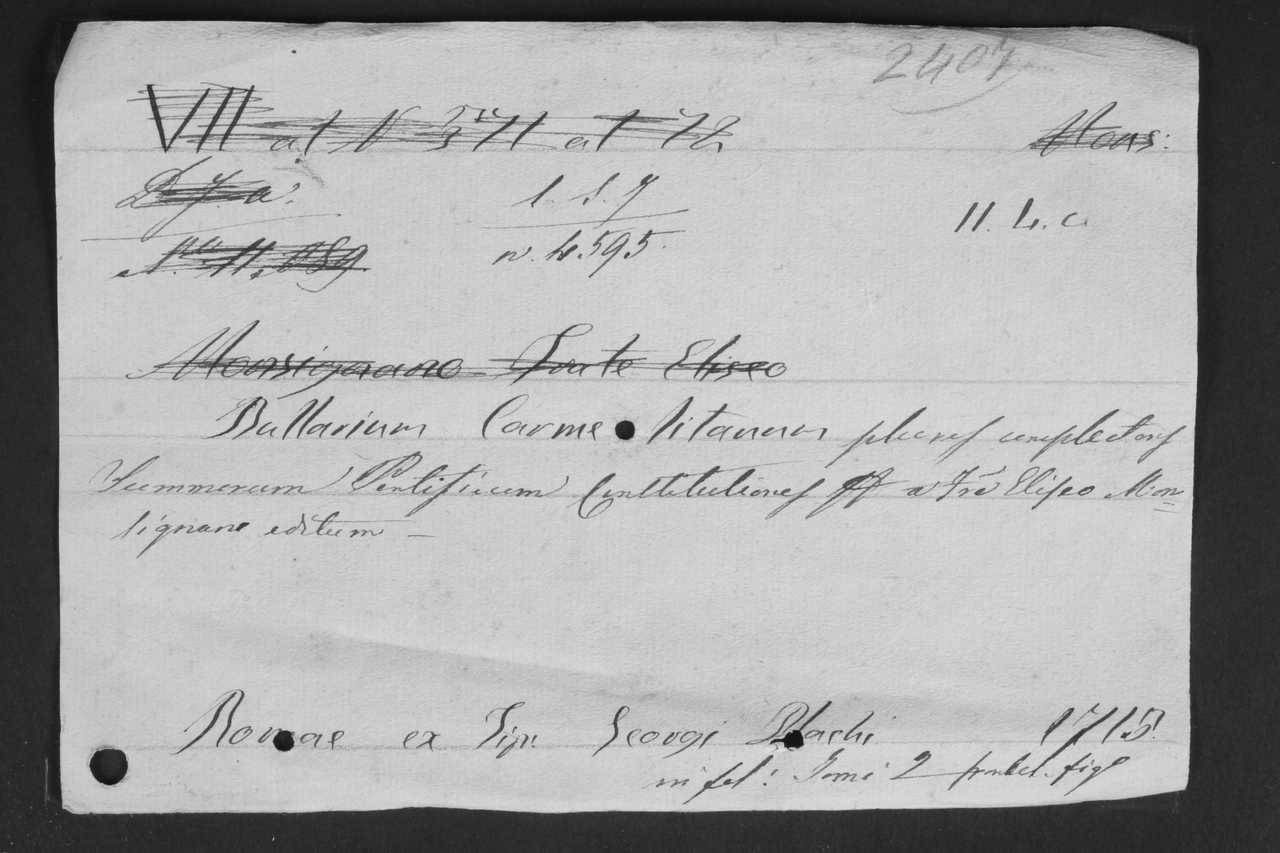 2407
VII at N 3 71 at 72 Mons:
D. J. a. 1. S. 7 11. 4. c.
N.ro 11,089 n. 4595.
Monsignano Frate Eliseo
Bullarium Carme litanum plures complectens
Summorum Pontificum Constitutiones a Fre Eliseo Mon=
signano editum —
Romae ex Tip. Georgi Plachi 1715.
in fol: Tomi 2 fig